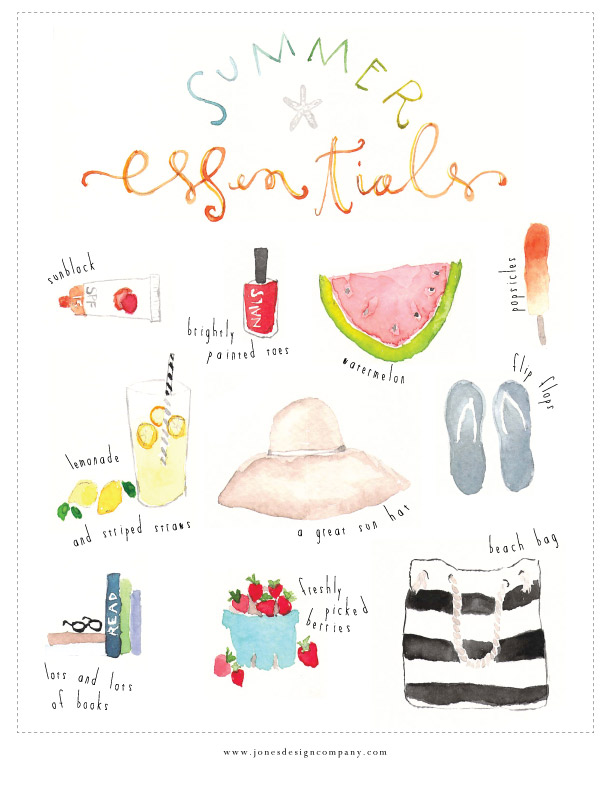 SUMMER
essentials
sunblock
SPF
15
NAILS
brightly
painted toes
watermelon
popsicles
lemonade
and striped straws
a great sun hat
flip flops
READ
lots and lots
of books
freshly
picked
berries
beach bag
www.jonesdesigncompany.com